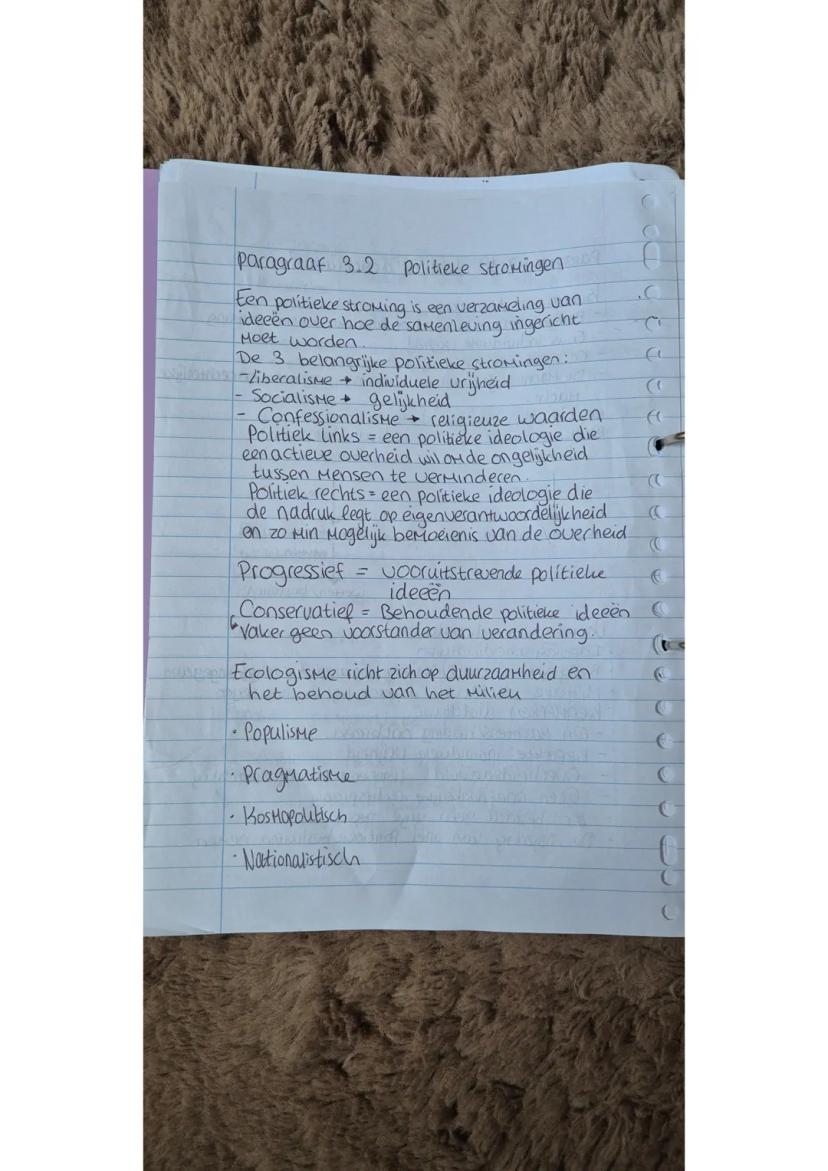 Paragraaf 3.2 Politieke stromingen
Een politieke stroming is een verzameling van
ideeën over hoe de samenleving ingericht
moet worden.
De 3 belangrijke politieke stromingen:
-liberalisme → individuele vrijheid
- Socialisme → gelijkheid
- Confessionalisme → religieuze waarden
Politiek links = een politieke ideologie die
een actieve overheid wil om de ongelijkheid
tussen mensen te verminderen.
Politiek rechts = een politieke ideologie die
de nadruk legt op eigenverantwoordelijkheid
en zo min mogelijk bemoeienis van de overheid
Progressief = vooruitstrevende politieke
ideeën
Conservatief = Behoudende politieke ideeën
Vaker geen voorstander van verandering.
Ecologisme richt zich op duurzaamheid en
het behoud van het milieu
· Populisme
· Pragmatisme
· Kosmopolitisch
· Nationalistisch